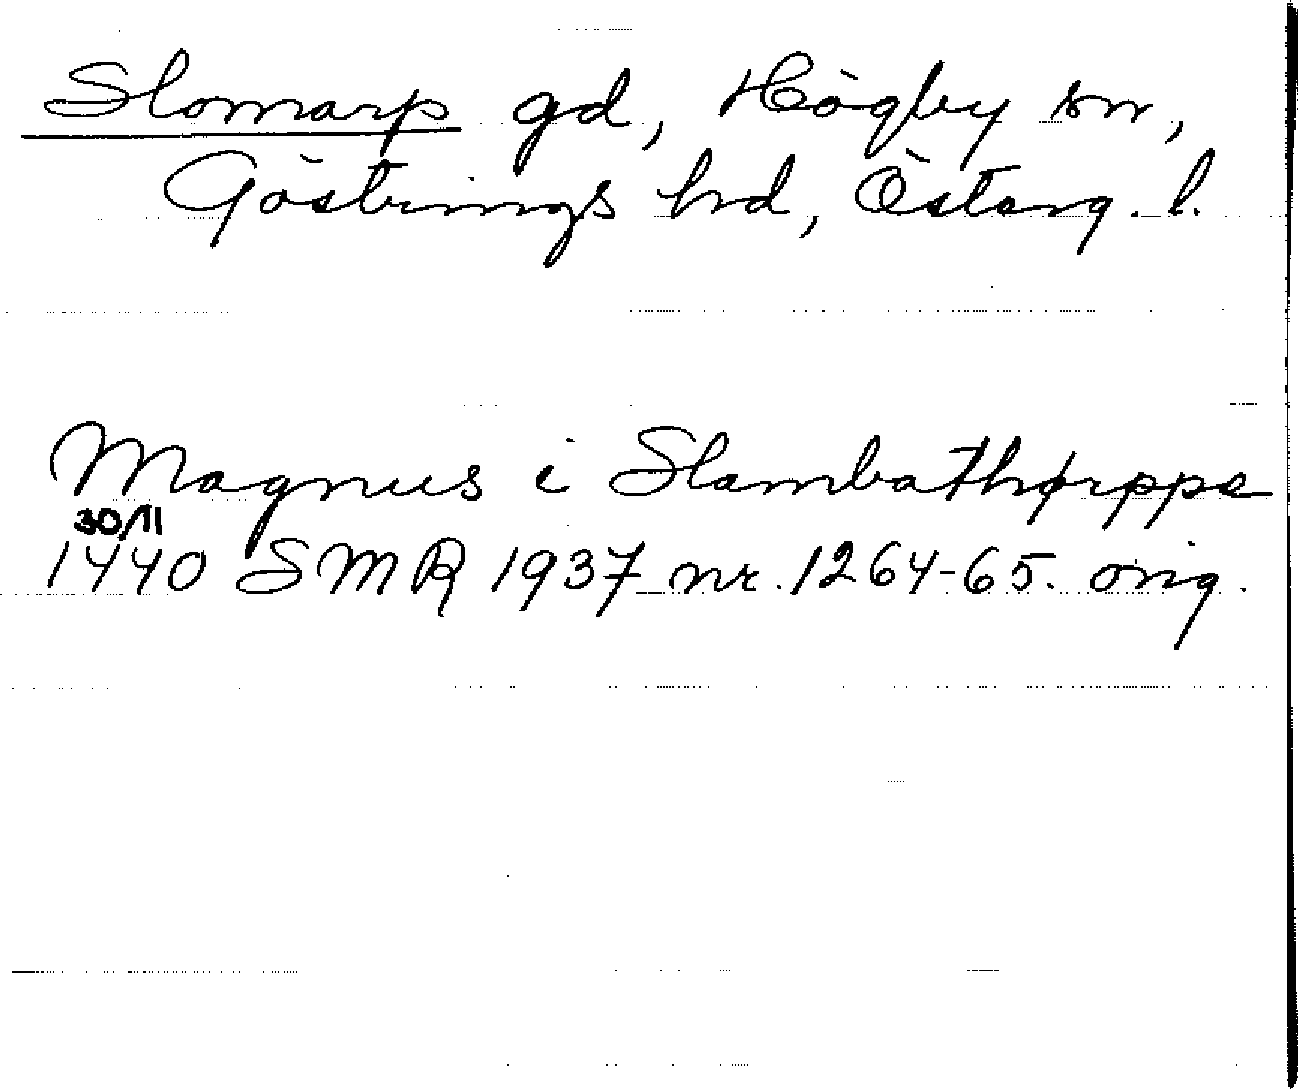 Slomarp gd, Högby sn,
Göstrings hd, Österg. l.
Magnus i Slambathørppe
30/11
1440 SMR 1937 nr. 1264-65. orig.